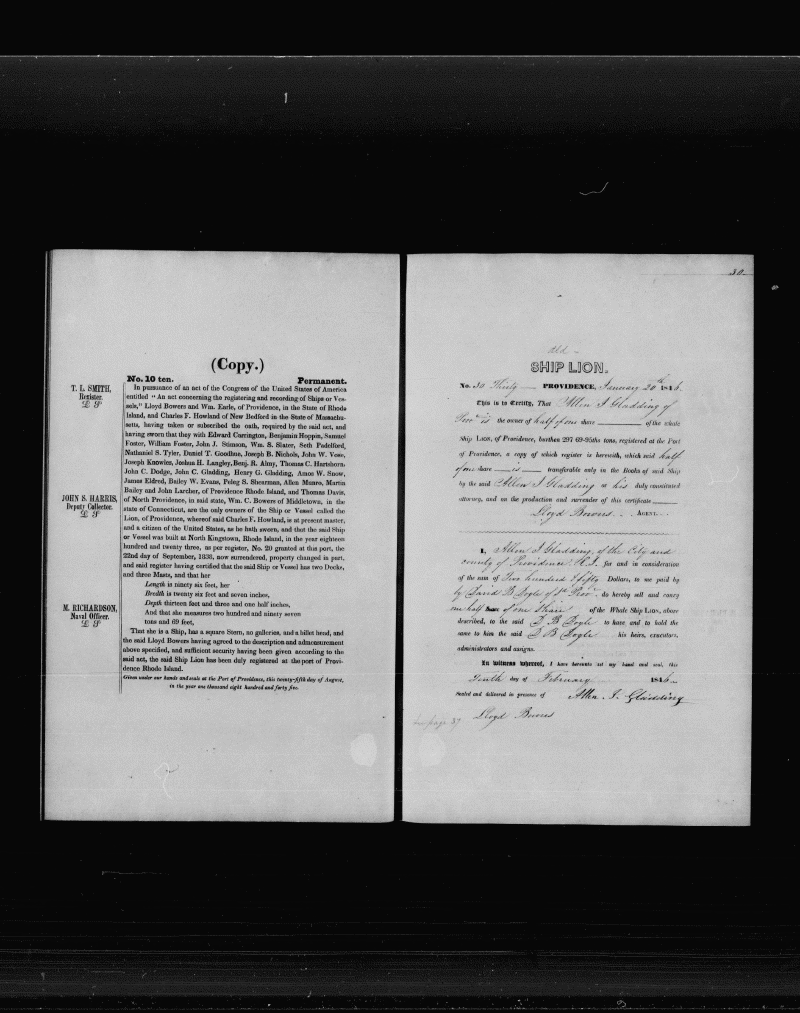 (Copy.)
No. 10 ten. Permanent.
T. L. SMITH,
Register.
L S
JOHN S. HARRIS,
Deputy Collector.
L S
M. RICHARDSON,
Naval Officer.
L S
In pursuance of an act of the Congress of the United States of America
entitled "An act concerning the registering and recording of Ships or Ves-
sels," Lloyd Bowers and Wm. Earle, of Providence, in the State of Rhode
Island, and Charles F. Howland of New Bedford in the State of Massachu-
setts, having taken or subscribed the oath, required by the said act, and
having sworn that they with Edward Carrington, Benjamin Hoppin, Samuel
Foster, William Foster, John J. Stimson, Wm. S. Slater, Seth Padelford,
Nathaniel S. Tyler, Daniel T. Goodhue, Joseph B. Nichols, John W. Vose,
Joseph Knowles, Joshua H. Langley, Benj. R. Almy, Thomas C. Hartshorn,
John C. Dodge, John C. Gladding, Henry G. Gladding, Amos W. Snow,
James Eldred, Bailey W. Evans, Peleg S. Shearman, Allen Munro, Martin
Bailey and John Larcher, of Providence Rhode Island, and Thomas Davis,
of North Providence, in said state, Wm. C. Bowers of Middletown, in the
state of Connecticut, are the only owners of the Ship or Vessel called the
Lion, of Providence, whereof said Charles F. Howland, is at present master,
and a citizen of the United States, as he hath sworn, and that the said Ship
or Vessel was built at North Kingstown, Rhode Island, in the year eighteen
hundred and twenty three, as per register, No. 20 granted at this port, the
22nd day of September, 1838, now surrendered, property changed in part,
and said register having certified that the said Ship or Vessel has two Decks,
and three Masts, and that her
Length is ninety six feet, her
Breadth is twenty six feet and seven inches,
Depth thirteen feet and three and one half inches,
And that she measures two hundred and ninety seven
tons and 69 feet,
That she is a Ship, has a square Stern, no galleries, and a billet head, and
the said Lloyd Bowers having agreed to the description and admeasurement
above specified, and sufficient security having been given according to the
said act, the said Ship Lion has been duly registered at the port of Provi-
dence Rhode Island.
Given under our hands and seals at the Port of Providence, this twenty-fifth day of August,
in the year one thousand eight hundred and forty five.
30
Old
SHIP LION.
No. 30 Thirty PROVIDENCE, January 20th 1846.
This is to Certify, That Allen I Gladding of
Prov is the owner of half of one share of the whole
Ship LION, of Providence, burthen 297 69-95ths tons, registered at the Port
of Providence, a copy of which register is herewith, which said half
of one share is transferable only in the Books of said Ship
by the said Allen I Gladding or his duly constituted
attorney, and on the production and surrender of this certificate
Lloyd Bowers AGENT.
I, Allen I Gladding, of the City and
county of Providence R.I. for and in consideration
of the sum of Two hundred & fifty Dollars, to me paid by
by David B Dogle of Sd Prov. do hereby sell and convey
one half share of one Share of the Whole Ship LION, above
described, to the said D B Dogle to have and to hold the
same to him the said D B Dogle his heirs, executors,
administrators and assigns.
In witness whereof, I have hereunto set my hand and seal, this
Tenth day of February 1846
Sealed and delivered in presence of Allen I. Gladding
Lloyd Bowers
see page 37